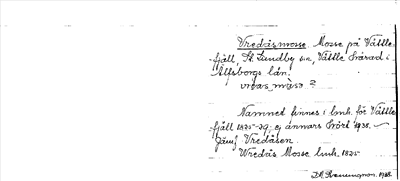 Vredåsmosse. Mosse på Vättle-
fjäll, St. Lundby sn, Vättle härad i
Älfsborgs län.
vrɷasmåsɷ ?
Namnet finnes i lmh. för Vättle
fjäll 1825-29; ej annars hört 1938. —
Jämf Vredåsen.
Wredås Mosse lmh. 1825
1938